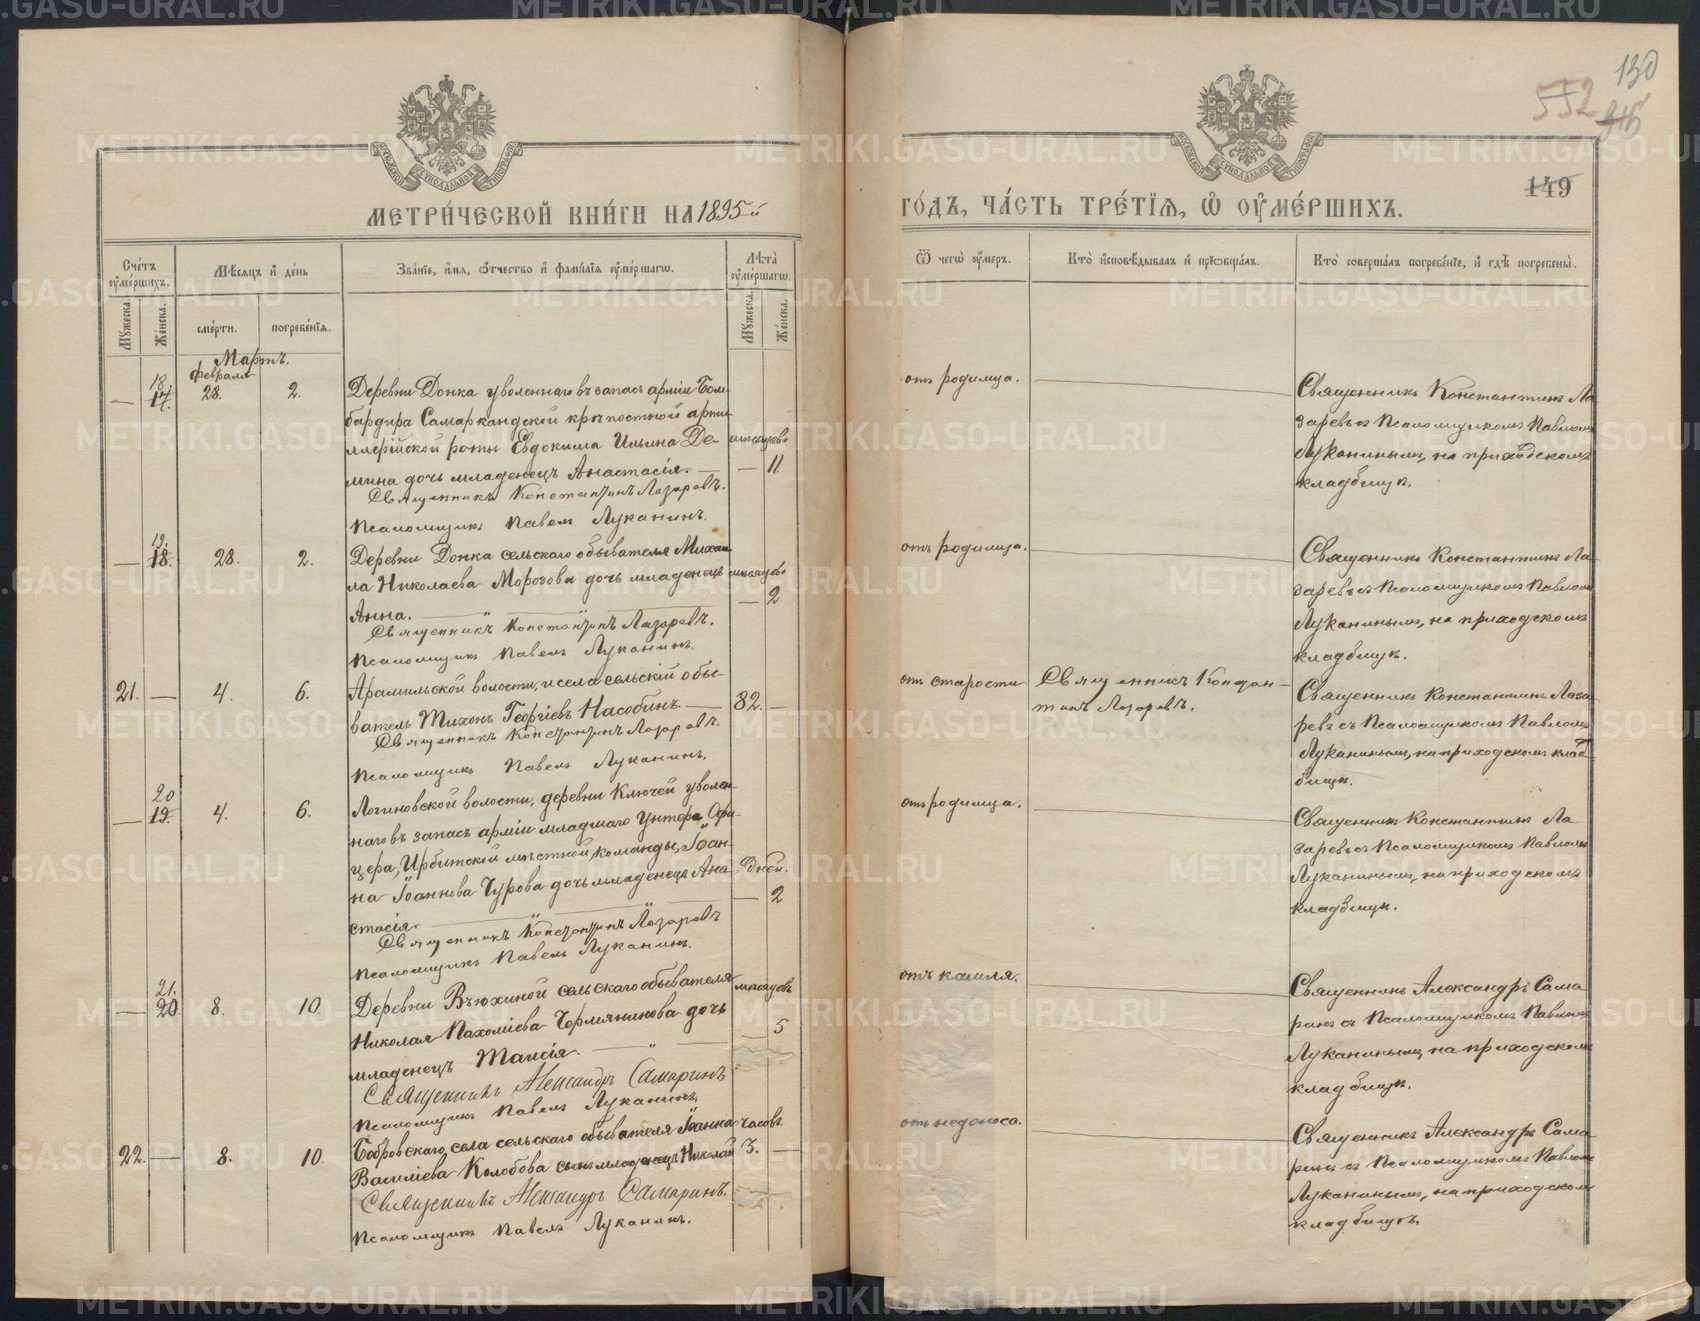 130
552
149
МЕТРИ́ЧЕСКОЙ КНИ́ГИ НА 1895й
ГО́ДЪ, ЧА́СТЬ ТРЕ́ТЇѦ, Ѽ ОУ҆МЕ́РШИХЪ.
Сче́тъ оу҆ме́ршихъ.
Мѣ́сѧцъ и҆ де́нь
Зва́нїе, и҆́мѧ, ѻ҆́тчество и҆ фамилїѧ оу҆ме́ршагѡ.
Лѣ́та оу҆ме́ршагѡ.
Ѿ чегѡ̀ оу҆́меръ.
Кто̀ и҆сповѣ́дывалъ и҆ прїѡбща́лъ.
Кто̀ соверша́лъ погребе́нїе, и҆ гдѣ̀ погребены̀.
Мꙋ́жеска.
Же́нска.
сме́рти.
погребе́нїѧ.
Мꙋ́жеска.
Же́нска.
Мартъ.
февраля
18
— 17. 28. 2.
Деревни Донка уволеннаго въ запасъ арміи Бом-
бардира Самаркандской крѣпостной арти-
ллерійской роты Евдокима Ильина Де- мѣсяцевъ
мина дочь младенецъ Анастасія. — — 11.
Священникъ Константинъ Лазаревъ.
Псаломщикъ Павелъ Луканинъ.
отъ родимца.
Священникъ Константинъ Ла
заревъ съ Псаломщикомъ Павломъ
Луканинымъ, на приходскомъ
кладбищѣ.
19.
— 18. 28. 2.
Деревни Донка сельскаго обывателя Михаи
ла Николаева Морозова дочь младенецъ мѣсяцевъ
Анна. — 2
Священникъ Константинъ Лазаревъ.
Псаломщикъ Павелъ Луканинъ.
отъ родимца.
Священникъ Константинъ Ла
заревъ съ Псаломщикомъ Павломъ
Луканинымъ, на приходскомъ
кладбищѣ.
21. — 4. 6.
Арамильской волости, и села сельскій обы-
ватель Тихонъ Георгіевъ Насобинъ. — 82. —
Священникъ Константинъ Лазаревъ.
Псаломщикъ Павелъ Луканинъ.
отъ старости
Священникъ Констан-
тинъ Лазаревъ.
Священникъ Константинъ Лаза
ревъ съ Псаломщикомъ Павломъ
Луканинымъ, на приходскомъ клад
бищѣ.
20
— 19. 4. 6.
Логиновской волости, деревни Ключей уволен
наго въ запасъ арміи младшаго Унтеръ Офи-
цера, Ирбитской мѣстной команды, Іоан-
на Іоаннова Чурова дочь младенецъ Ана- дней.
стасія. — 2
Священникъ Константинъ Лазаревъ
Псаломщикъ Павелъ Луканинъ.
отъ родимца.
Священникъ Константинъ Ла
заревъ съ Псаломщикомъ Павломъ
Луканинымъ, на приходскомъ
кладбищѣ.
21.
— 20. 8. 10.
Деревни Вьюхиной сельскаго обывателя мѣсяцевъ
Николая Пахоміева Чермянинова дочь — 5
младенецъ Таисія.
Священникъ Александръ Самаринъ
Псаломщикъ Павелъ Луканинъ.
отъ кашля.
Священникъ Александръ Сама
ринъ съ Псаломщикомъ Павломъ
Луканинымъ, на приходскомъ
кладбищѣ.
22. — 8. 10.
Бобровскаго села сельскаго обывателя Іоанна часовъ.
Васильева Колобова сынъ младенецъ Николай 3. —
Священникъ Александръ Самаринъ.
Псаломщикъ Павелъ Луканинъ.
отъ недоноса.
Священникъ Александръ Сама
ринъ съ Псаломщикомъ Павломъ
Луканинымъ, на приходскомъ
кладбищѣ.
METRIKI.GASO-URAL.RU